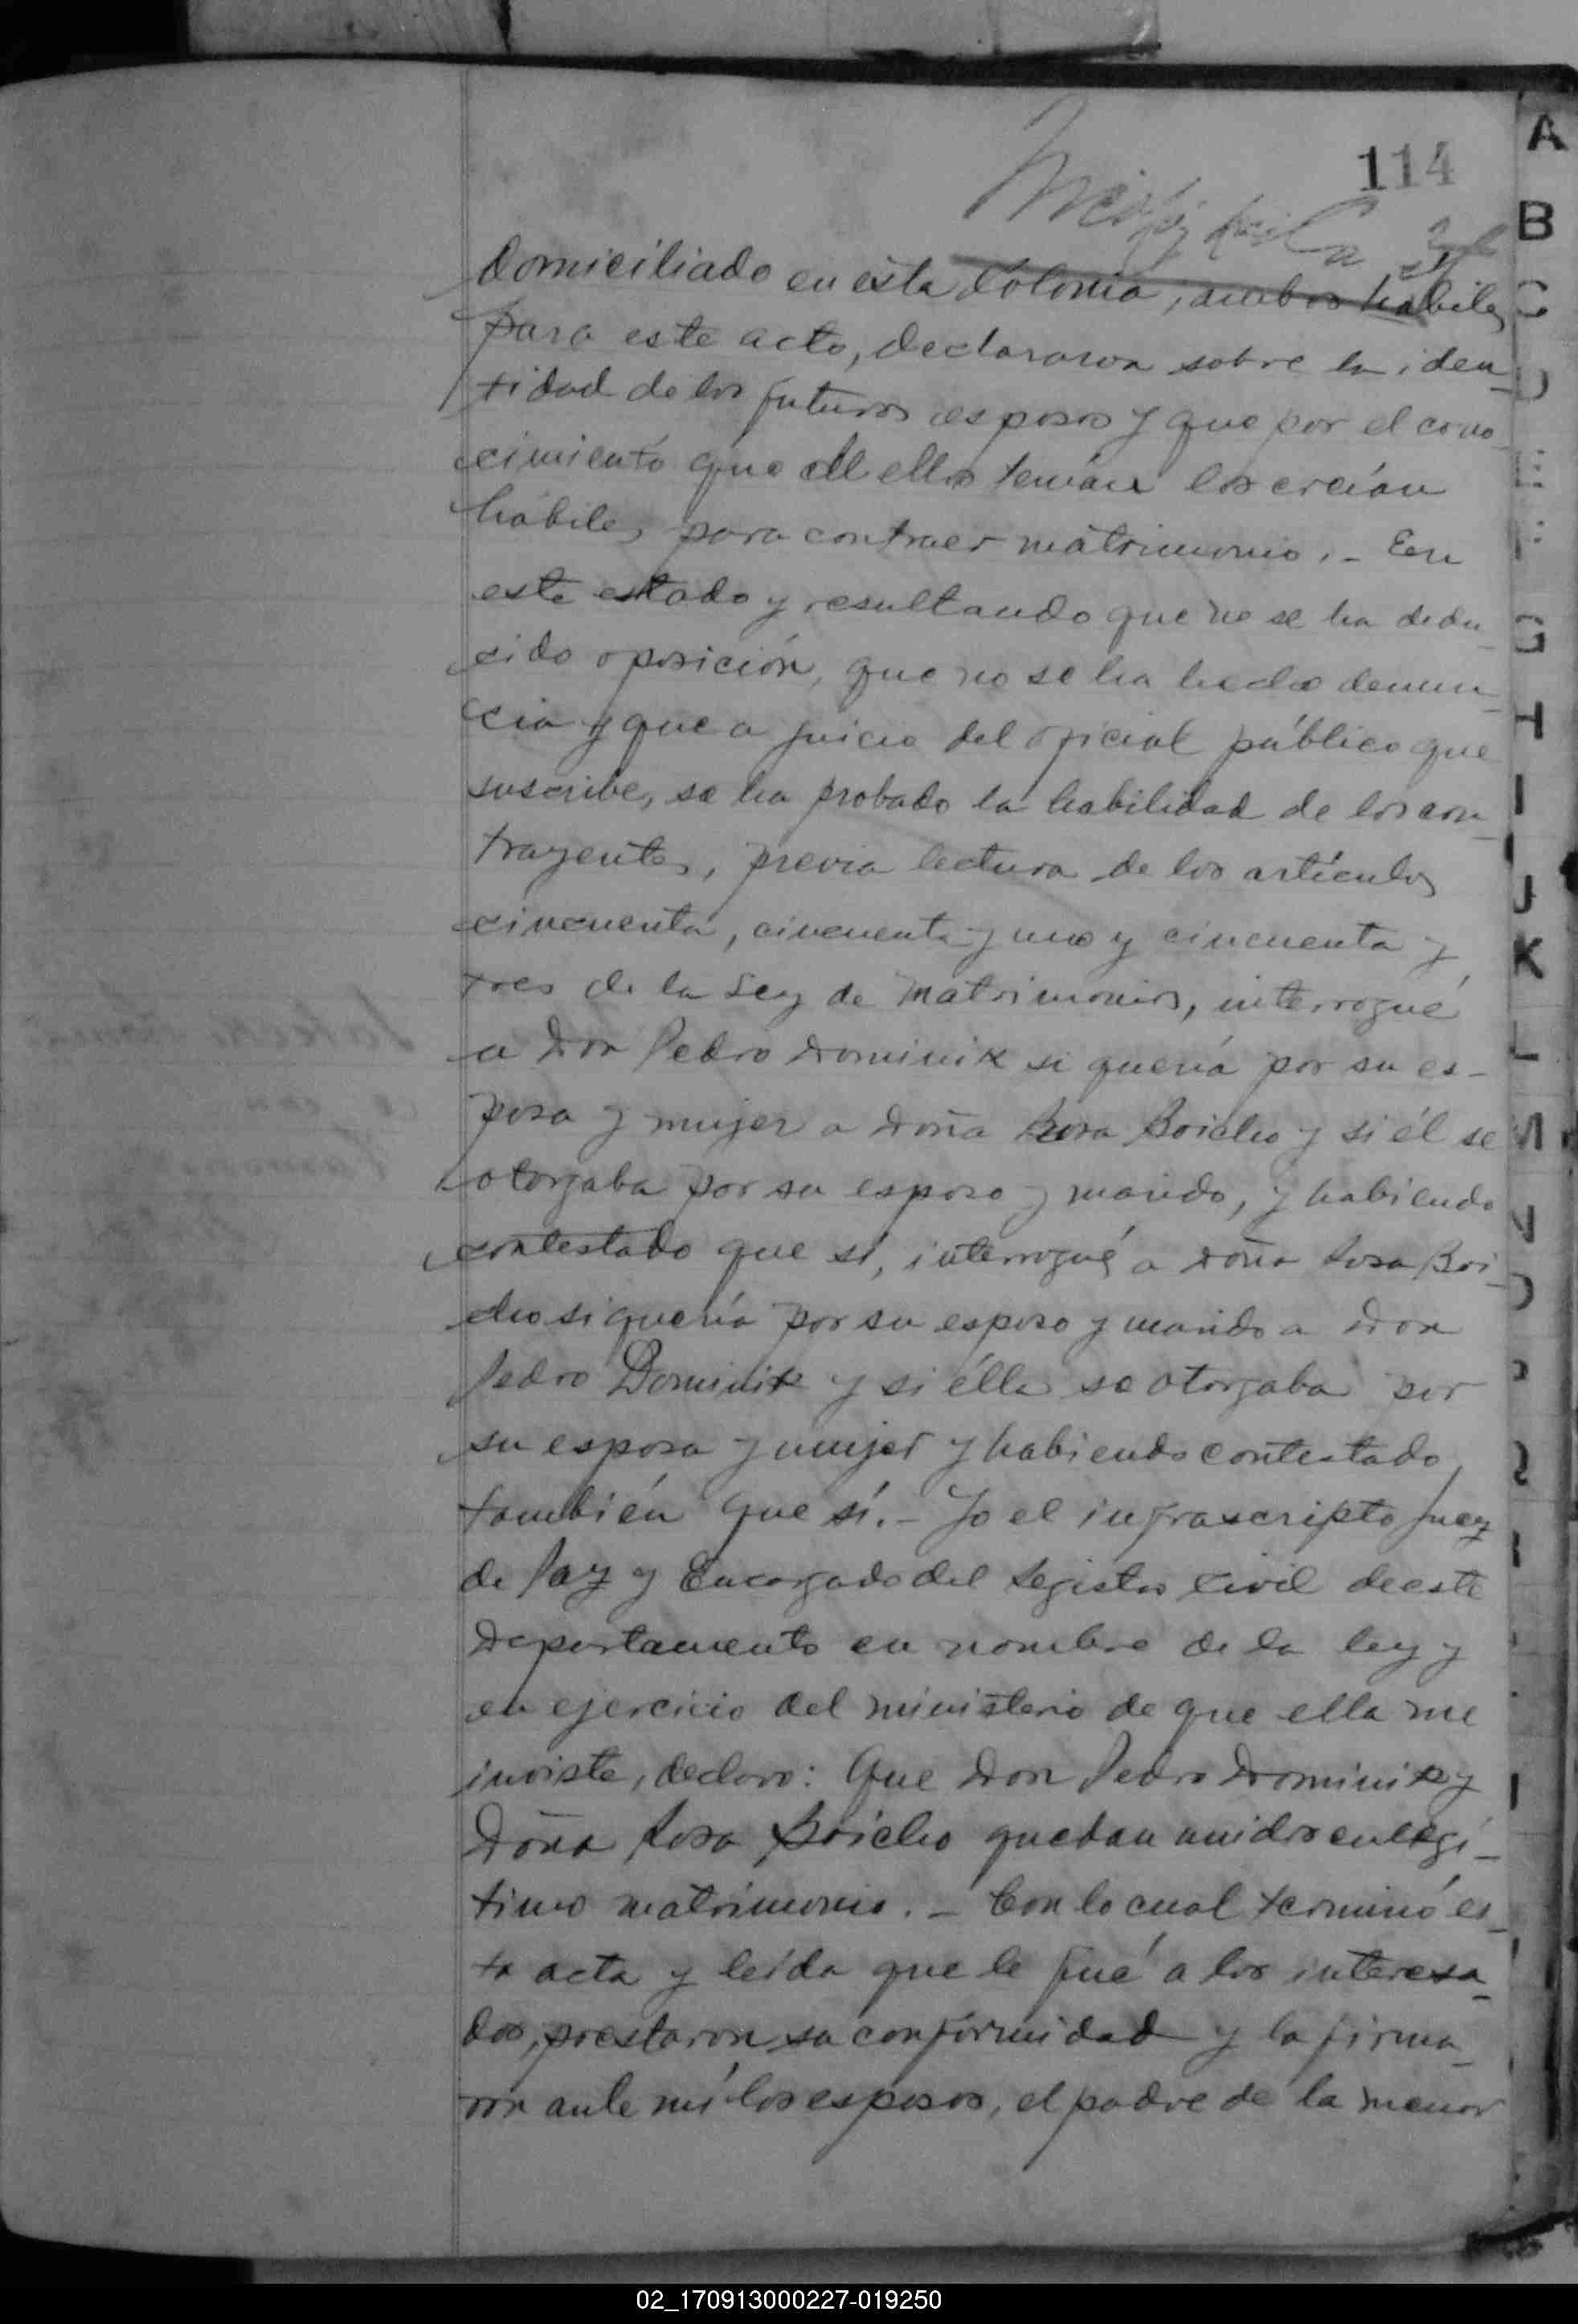 114
domiciliado en ésta Colonia, ambos habiles
para este acto, declararon sobre la iden_
tidad de los futuros esposos y que por el cono_
cimiento que de ellos tenían los creían
hábiles para contraer matrimonio. - En
este estado y resultando que no se ha dedu_
cido oposición, que no se ha hecho denun_
cia y que a juicio del oficial público que
suscribe, se ha probado la habilidad de los con_
trayentes, previa lectura de los artículos
cincuenta, cincuenta y uno y cincuenta y
tres de la Ley de Matrimonios, interrogué
a Don Pedro Dominik si quería por su es-
posa y mujer a Doña Rosa Boicho y si él se
otorgaba por su esposo y marido, y habiendo
contestado que sí, interrogué a Doña Rosa Boi_
cho si quería por su esposo y marido a Don
Pedro Dominik y si élla se otorgaba por
su esposa y mujer y habiendo contestado
también que sí. - Yo el infrascripto Juez
de Paz y Encargado del Registro Civil de este
Departamento en nombre de la ley y
en ejercicio del ministerio de que ella me
inviste, declaro: Que Don Pedro Dominik y
Doña Rosa Boicho quedan unidos en legí_
timo matrimonio. - Con lo cual terminó es_
ta acta y leída que le fué a los interesa_
dos, prestaron su conformidad y la firma_
ron ante mí los esposos, el padre de la menor
A
B
C
D
E
F
G
H
I
J
K
L
M
N
O
02_170913000227-019250